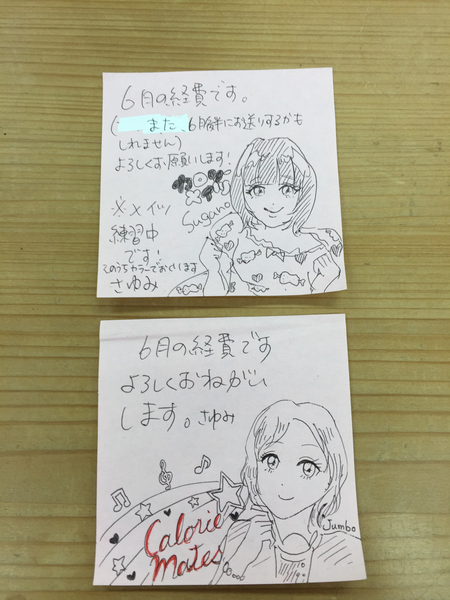 6月の経費です。
(また、6月後半にお送りするかも
しれません)
よろしくお願いします!
カロリー
メイツ
Sugano
※メイツ
練習中
です!
そのうちカラーでおくります
さゆみ
6月の経費です
よろしくおねがい
します。さゆみ
Calorie
Mates
Jumbo